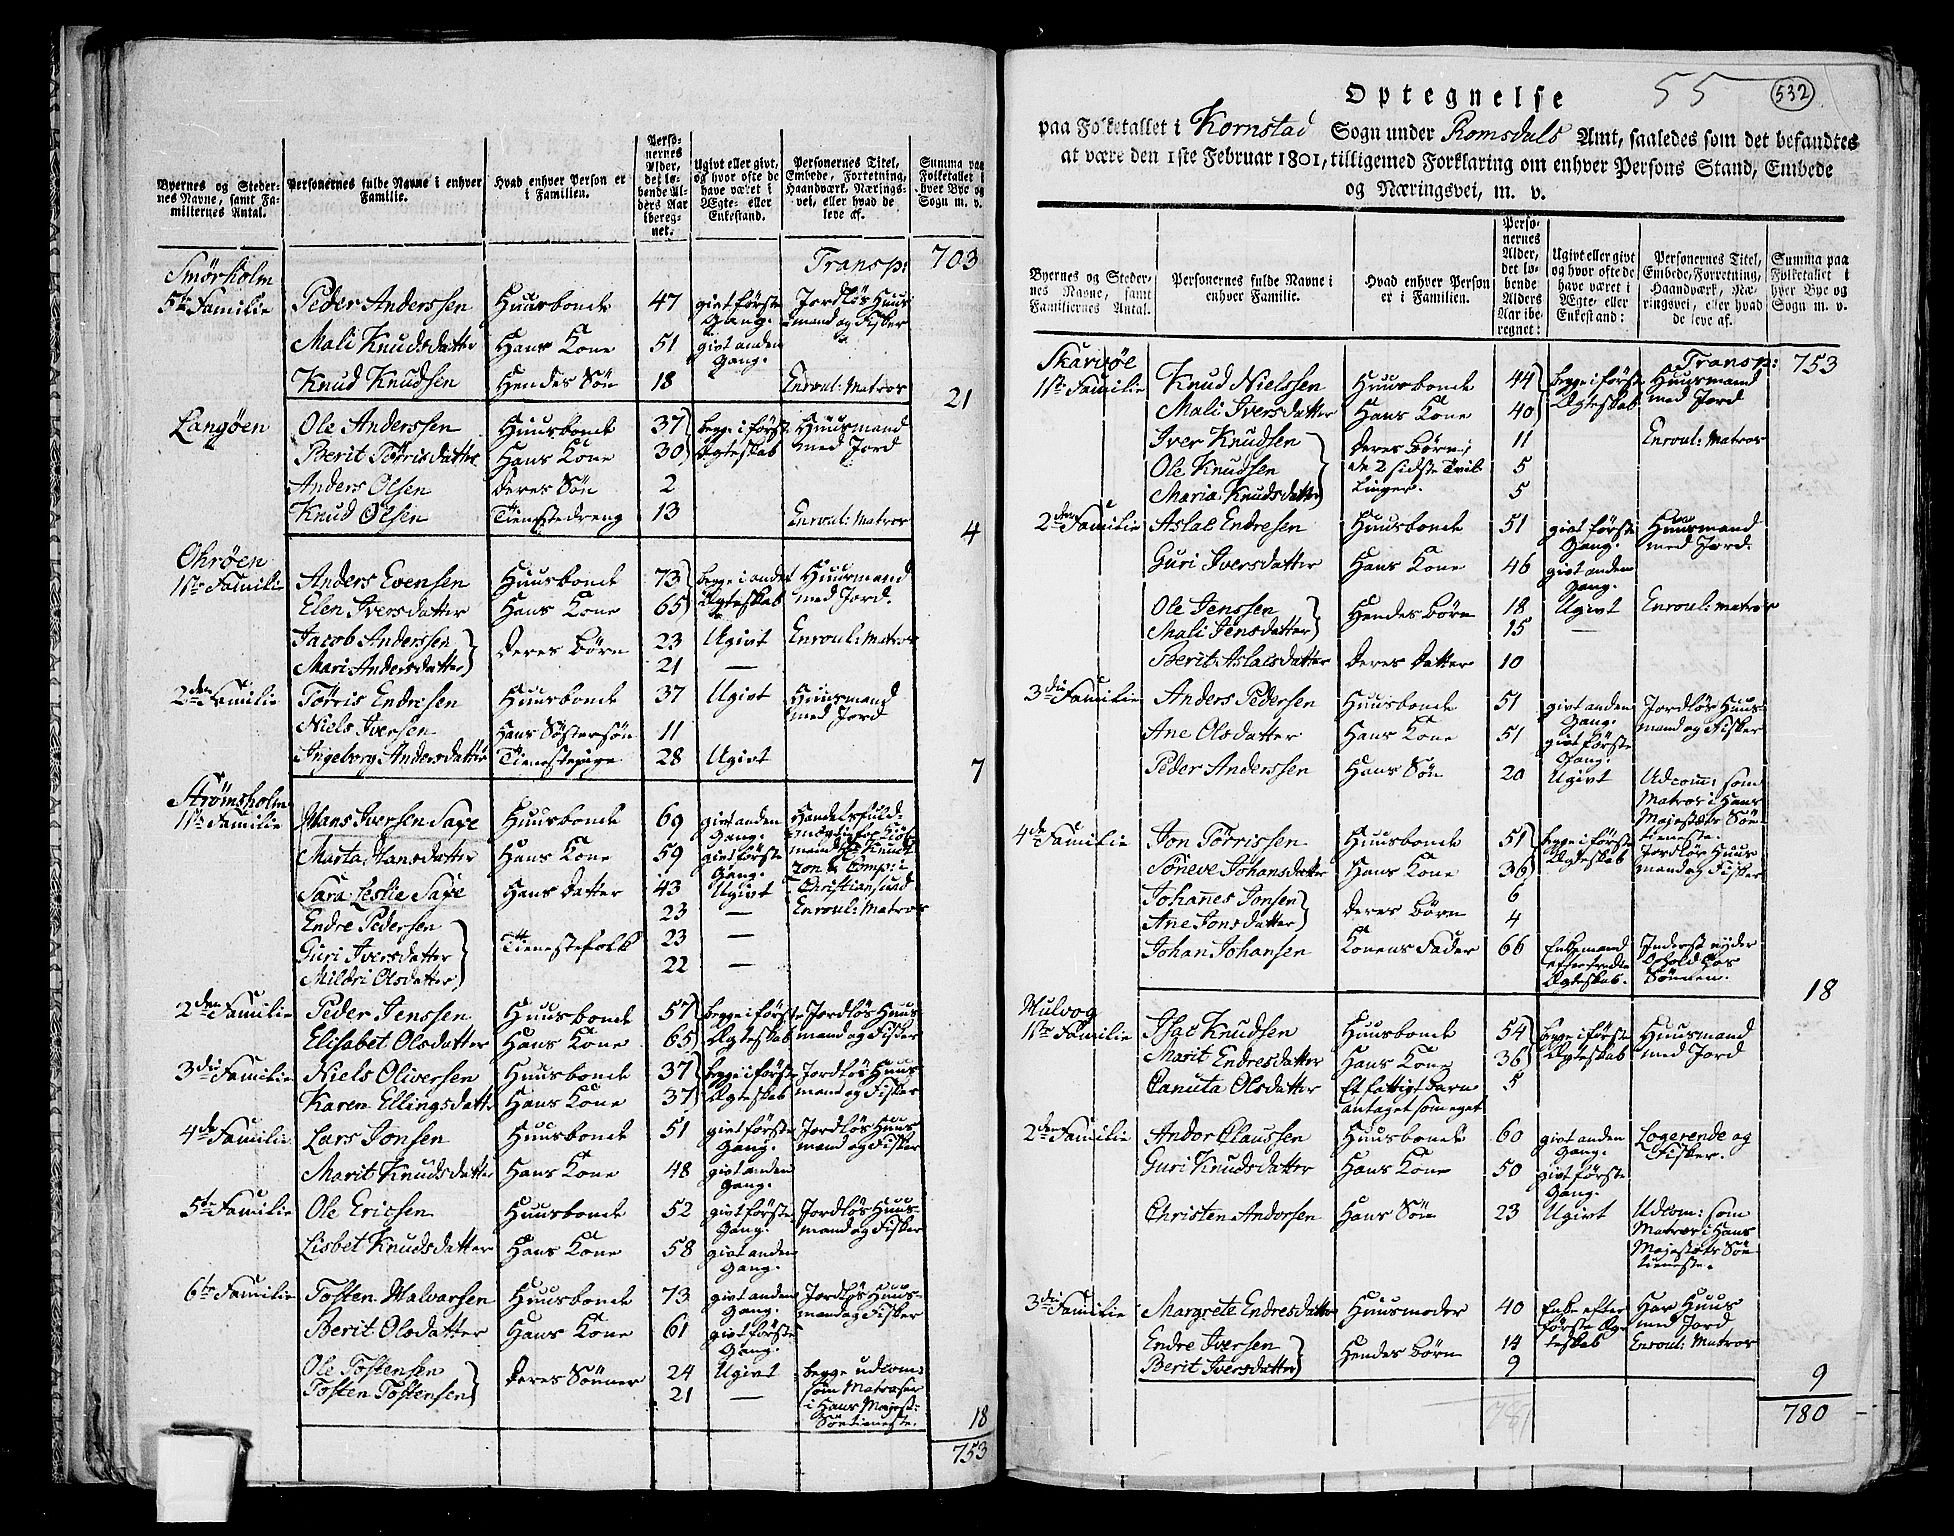 Byernes og Steder-
nes Navne, samt Fa-
miliernes Antal.
Personernes fulde Navne i enhver
Familie.
Hvad enhver Person er
i Familien.
Perso-
nernes
Alder,
det lø-
bende Al-
ders Aar
ibereg-
net.
Ugivt eller givt,
og hvor ofte de
have været i
Ægte- eller
Enkestand.
Personernes Titel,
Embede, Forretning,
Haandværk, Nærings-
vei, eller hvad de
leve af.
Summa paa
Folketallet i
hver Bye og
Sogn m. v.
Transp: 703
Smørholm
5te Familie Peder Anderssen Huusbonde 47 givt første Gang. Jordløs Huusmand og Fisker
Mali Knudsdatter Hans Kone 51 givt anden Gang.
Knud Knudsen Hendes Søn 18 Enroul: Matros 21
Langøen Ole Anderssen Huusbonde 37 begge i første Huusmand
Berit Törrisdatter Hans Kone 30 Ægteskab med Jord
Anders Olsen Deres Søn 2
Knud Olsen Tienestedreng 13 Enroul: Matros 4
Ohrøen
1ste Familie Anders Evensen Huusbonde 73 begge i andet Huusmand
Elen Iversdatter Hans Kone 65 Ægteskab med Jord.
Jacob Anderssen Deres Børn 23 Ugivt Enroul: Matros
Mari Andersdatter 21 —
2den Familie Törris Endresen Huusbonde 37 Ugivt Huusmand med Jord
Niels Iversen Hans Søstersøn 11
Ingeborg Andersdatter Tienestepige 28 Ugivt 7
Strømsholm
1ste Familie Hans Iversen Saxe Huusbonde 69 givt anden Gang. Handelsfuld-
Marta Hansdatter Hans Kone 59 givt første Gang.
zon & Comp: i
Sara Leslie Saxe Hans Datter 43 Ugivt Christiansund
Endre Pedersen 23 — Enroul: Matros
Guri Iversdatter Tienestefolk 23 —
Mildri Olsdatter 22 —
2den Familie Peder Jenssen Huusbonde 57 begge i første Jordløs Huus-
Elisabet Olsdatter Hans Kone 65 Ægteskab mand og Fisker
3die Familie Niels Oliversen Huusbonde 37 begge i første Jordløs Huus-
Karen Ellingsdatter Hans Kone 37 Ægteskab mand og Fisker
4de Familie Lars Jonsen Huusbonde 51 givt første Gang. Jordløs Huusmand og Fisker
Marit Knudsdatter Hans Kone 48 givt anden Gang.
5te Familie Ole Ericsen Huusbonde 52 givt første Gang. Jordløs Huusmand og Fisker
Lisbet Knudsdatter Hans Kone 58 givt anden Gang.
6te Familie Tosten Halvorsen Huusbonde 73 givt anden Gang. Jordløs Huusmand og Fisker
Berit Olsdatter Hans Kone 61 givt første Gang.
Ole Tostensen Deres Sønner 24 Ugivt begge udcom:
Tosten Tostensen 21 — som Matroser
i Hans Majest:
Søetieneste. 18
753
55 532
Optegnelse
paa Folketallet i Kornstad Sogn under Romsdals Amt, saaledes som det befandtes
at være den 1ste Februar 1801, tilligemed Forklaring om enhver Persons Stand, Embede
og Næringsvei, m. v.
Byernes og Steder-
nes Navne, samt
Familiernes Antal.
Personernes fulde Navne i
enhver Familie.
Hvad enhver Person
er i Familien.
Perso-
nernes
Alder,
det lø-
bende
Alders
Aar ibe-
regnet:
Ugivt eller givt
og hvor ofte de
have været i
Ægte- eller
Enkestand:
Personernes Titel,
Embede, Forretning,
Haandværk, Næ-
ringsvei, eller hvad
de leve af.
Summa paa
Folketallet i
hver Bye og
Sogn m. v.
Skarvøe Transp: 753
1ste Familie Knud Nielssen Huusbonde 44 begge i første Huusmand
Mali Iversdatter Hans Kone 40 Ægteskab med Jord
Iver Knudsen Deres Børn; 11 Enroul: Matros
Ole Knudsen de 2 sidste Tvil- 5
Maria Knudsdatter linger. 5
2den Familie Aslac Endresen Huusbonde 51 givt første Gang. Huusmand med Jord.
Guri Iversdatter Hans Kone 46 givt anden Gang.
Ole Jenssen Hendes Børn 18 Ugivt Enroul: Matros
Mali Jensdatter 15 —
Berit Aslacsdatter Deres Datter 10
3die Familie Anders Pedersen Huusbonde 51 givt anden Gang. Jordløs Huusmand og Fisker
Ane Olsdatter Hans Kone 51 givt første Gang.
Peder Anderssen Hans Søn 20 Ugivt Udcom: som
Matros i Hans
Majestæts Søe
tieneste.
4de Familie Jon Törrissen Huusbonde 51 begge i første Jordløs Huus
Søneve Johansdatter Hans Kone 36 Ægteskab mand og Fisker
Johanes Jonsen Deres Børn 6
Ane Jonsdatter 4
Johan Johansen Konens Fader 66 Enkemand
Ægteskab. 18
Hulvog
1ste Familie Isac Knudsen Huusbonde 54 begge i første Huusmand
Marit Endresdatter Hans Kone 36 Ægteskab med Jord
Canuta Olsdatter Et fattigt Barn 5
antaget som eget
2den Familie Andor Claussen Huusbonde 60 givt anden Gang. Logerende og Fisker.
Guri Knudsdatter Hans Kone 50 givt første Gang.
Christen Andorsen Hans Søn 23 Ugivt Udcom: som
Matros i Hans
Majestæts Søe
tieneste.
3die Familie Margrete Endresdatter Huusmoder 40 Enke efter Har Huus
første Æg med Jord
Endre Iversen Hendes Børn 14 teskab Enroul: Matros
Berit Iversdatter 9
9
781 780